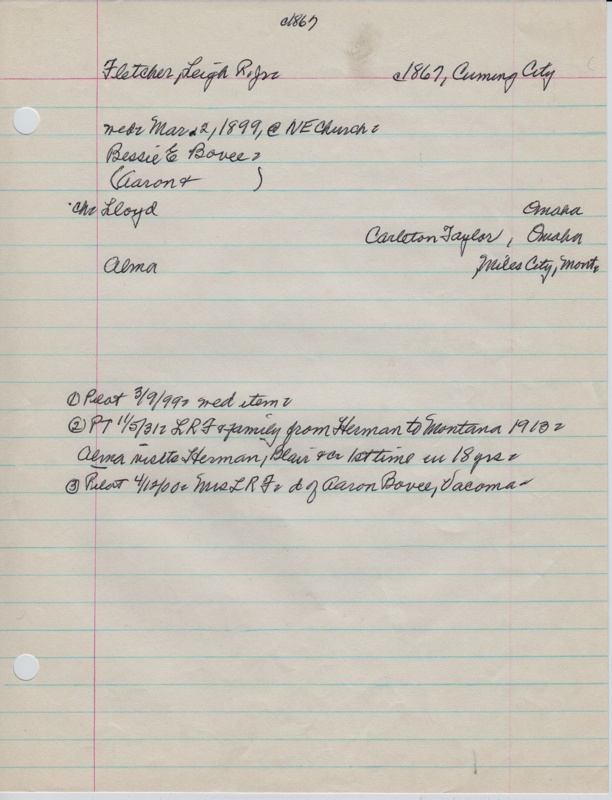 c1867
Fletcher, Leigh R. Jr. c1867, Cuming City
wed. Mar. 2, 1899, @ NE Church.
Bessie E Bovee.
(Aaron + )
ch. Lloyd Omaha
Carleton Taylor, Omaha
Alma Miles City, Mont.
① Pilot 3/9/99. wed item.
② PT 11/5/31. LRF + family from Herman to Montana 1913.
Alma visits Herman, Blair + 1st time in 18 yrs.
③ Pilot 4/12/00. Mrs LRF. d of Aaron Bovee, Vacoma.